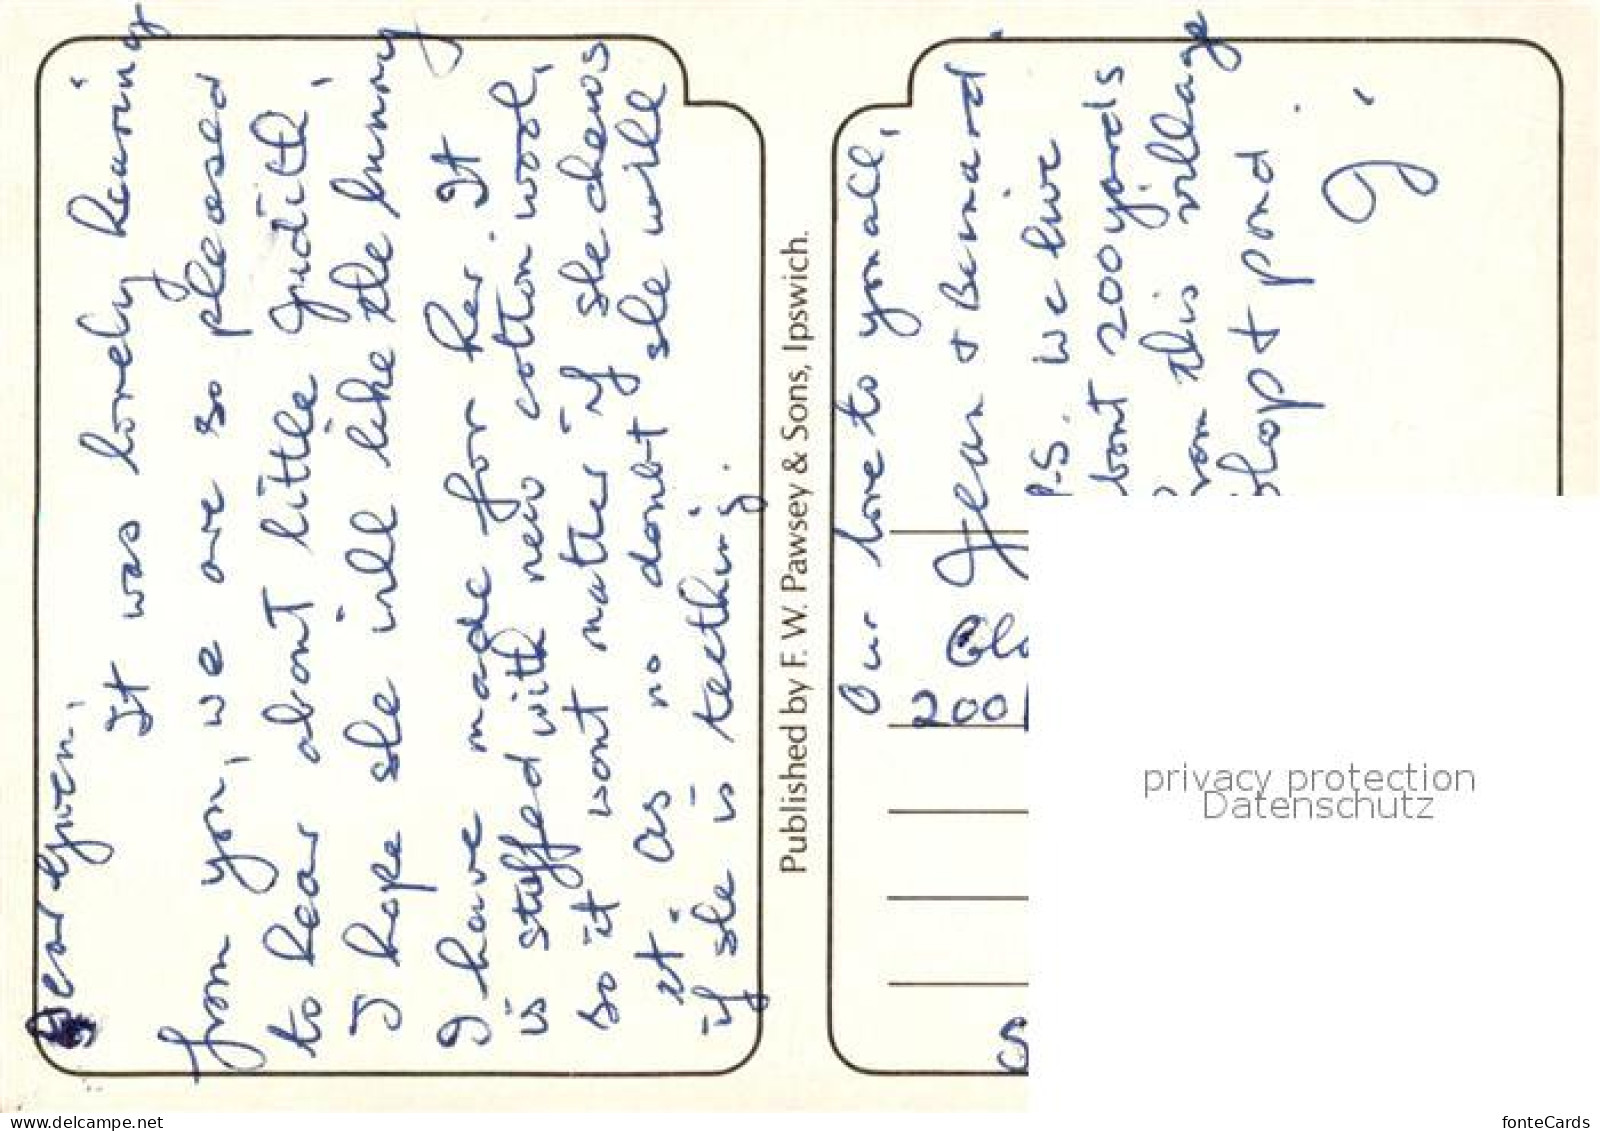 Dear Gwen,
It was lovely hearing
from you, we are so pleased
to hear about little Judith,
I hope she will like the bunny
I have made for her. It
is stuffed with new cotton wool,
so it wont matter if she chews
it. As no doubt she will
if she is teething.
Published by F. W. Pawsey & Sons, Ipswich.
Our love to you all,
Jean & Bernard.
P.S. we live
bout 200 yards
rom this village
shop & pond.
J.
Glo
200
S
privacy protection
Datenschutz
www.delcampe.net
fonteCards